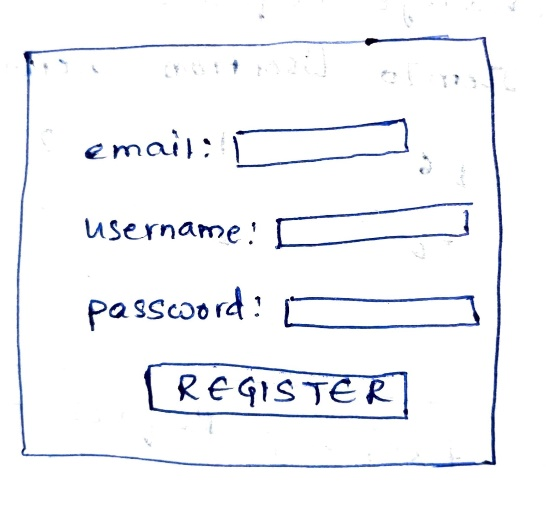 email:
username:
password:
REGISTER